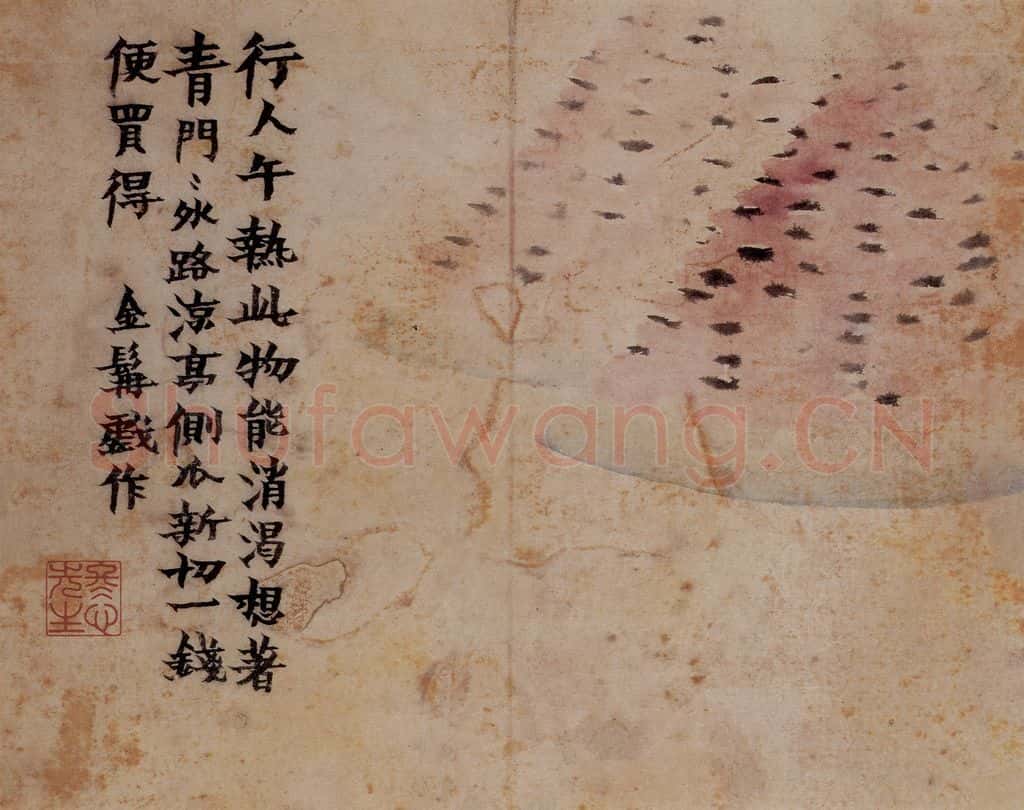 行人午熱此物能消渴想著
青門門外路涼亭側瓜新切一錢
便買得 金髯戲作
冬心先生
Shufawang.CN